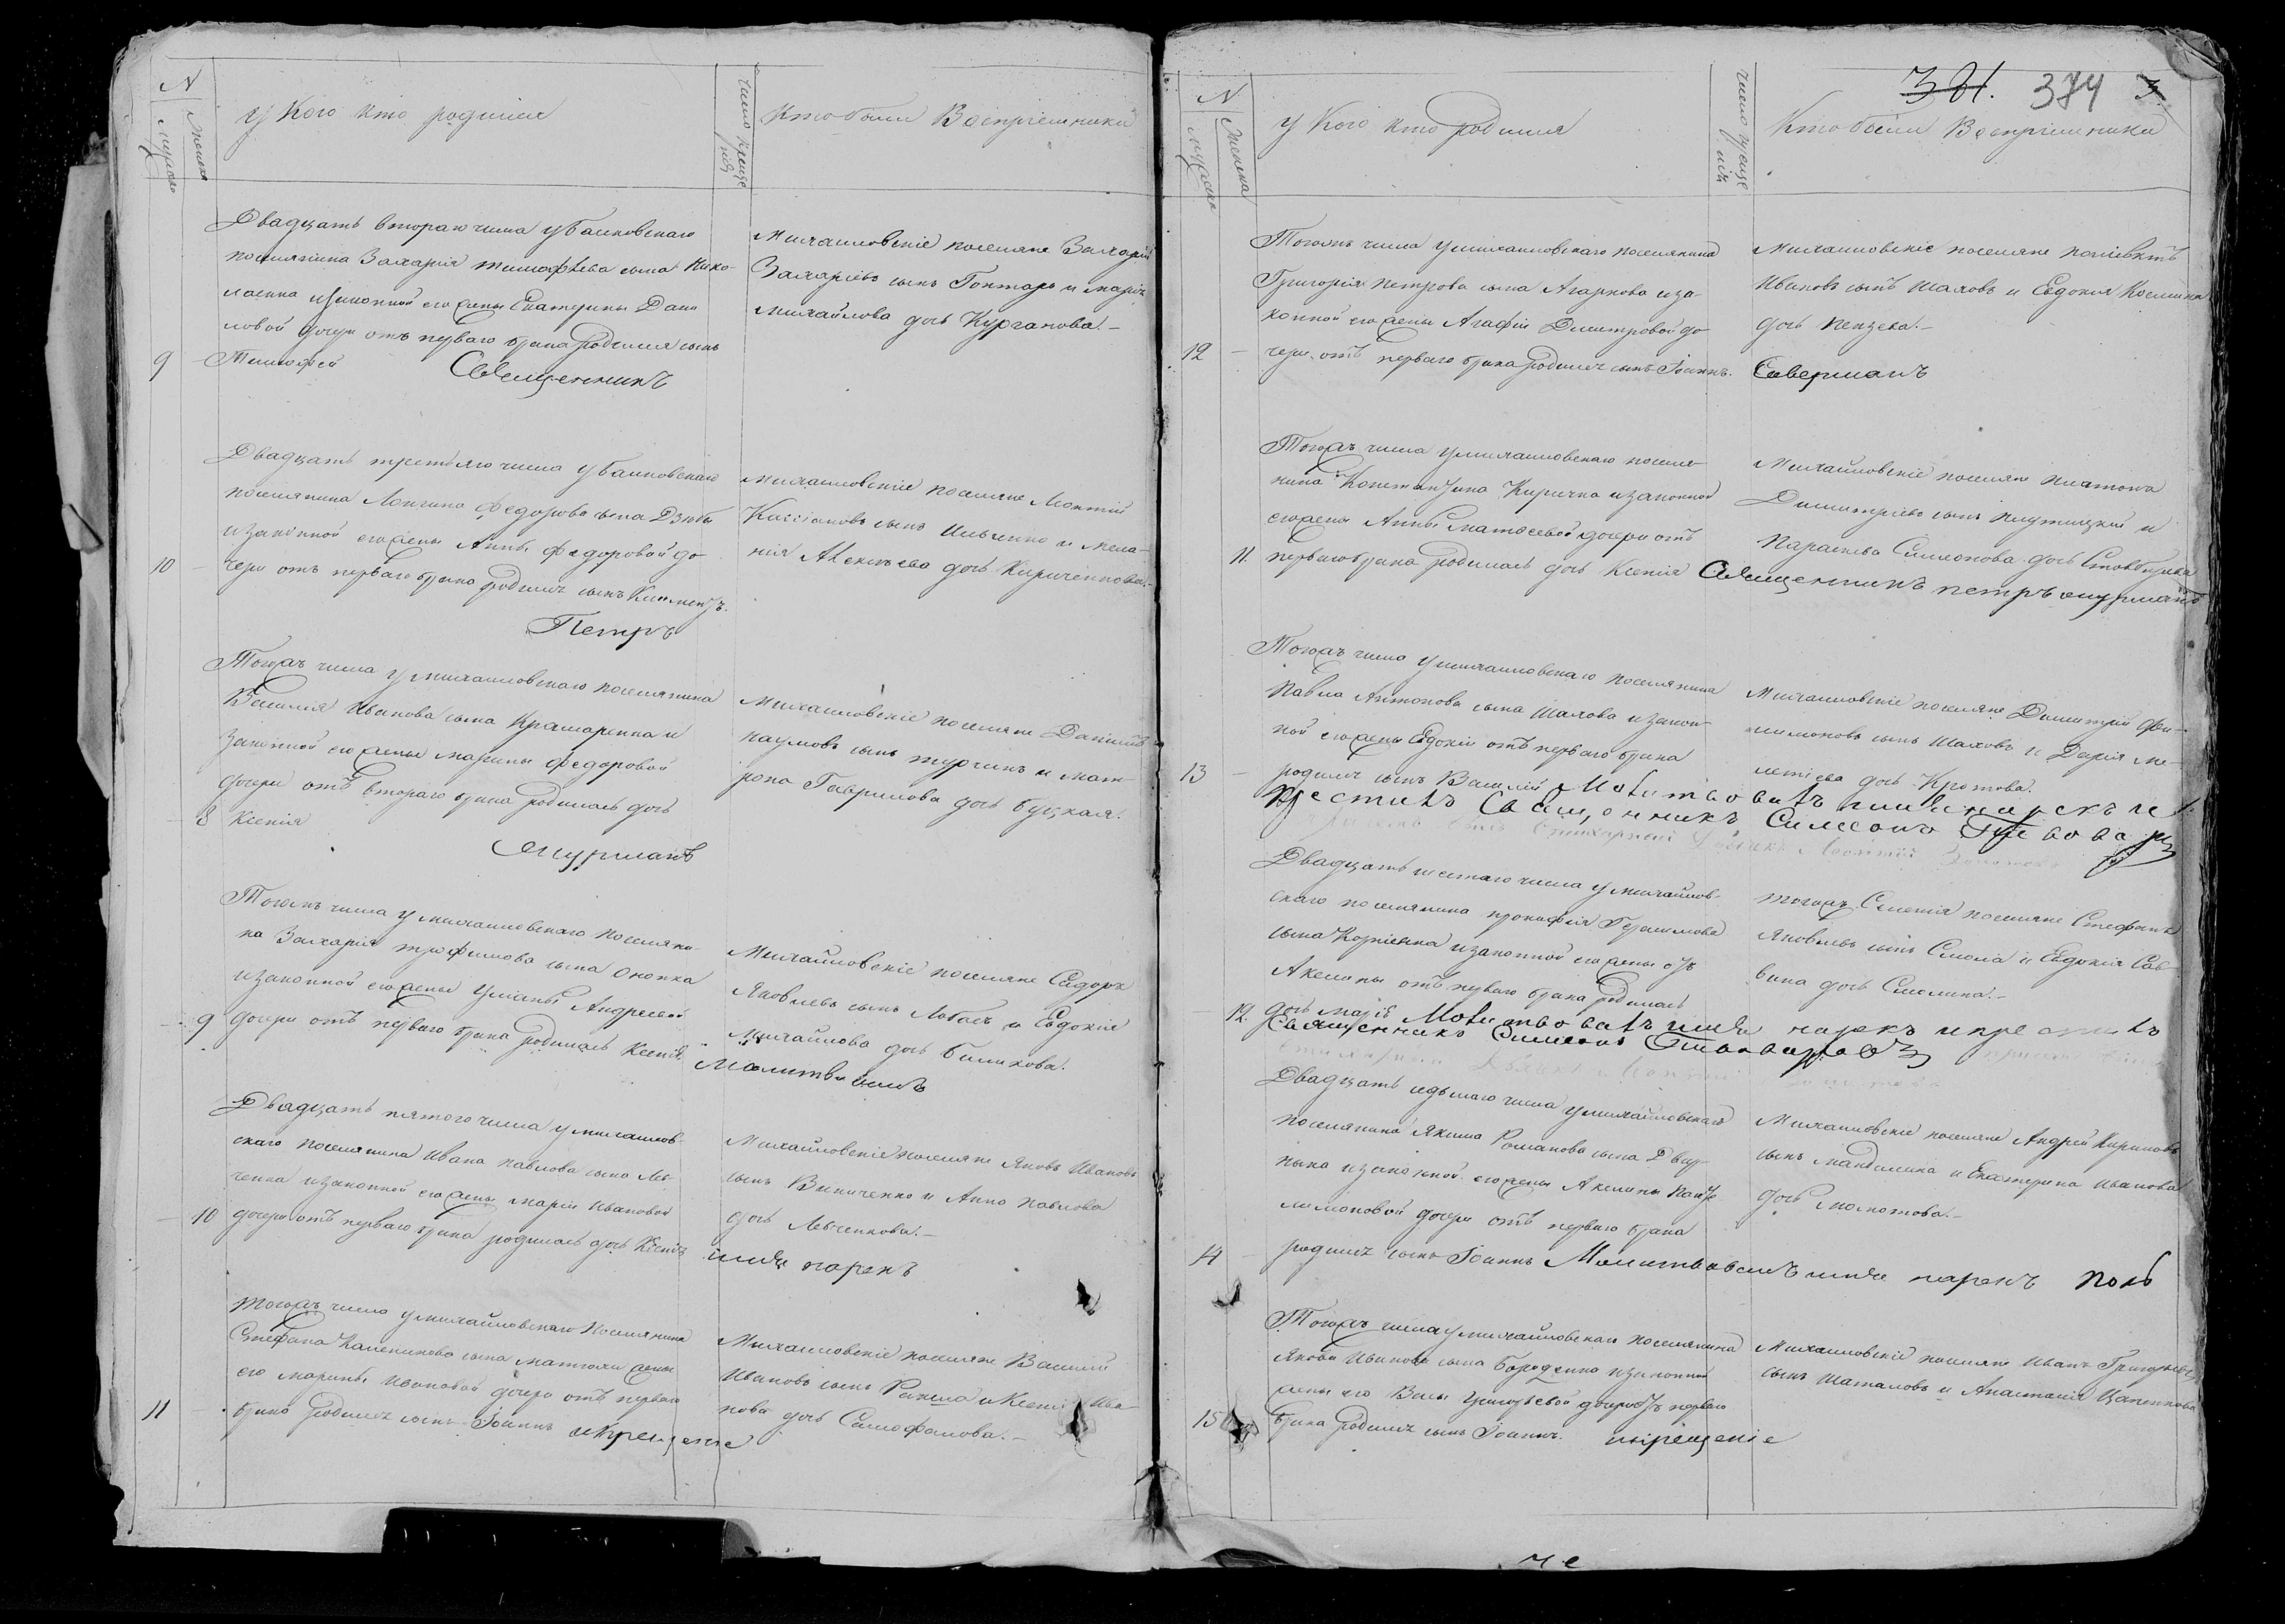 N
Мужеска
Женска
у Кого кто родился
Число креще
нія
Кто были Воспріемники
Двадцать втораго числа у балковскаго
поселянина Захарія тимофѣева сына Нико-
лаенка изаконной его жены Екатерины Дани
ловой дочери отъ перваго брака родился сынъ
9 Тимофей Священникъ
Михаиловскіе поселяне Захарій
Захаріевъ сынъ Гонтарь и марія
михайлова дочь Курганова.-
Двадцать третьяго числа у балковскаго
поселянина Лонгина федорова сына Дзюбы
изаконной его жены Анны федоровой до
10 чери отъ перваго брака родился сынъ Климентъ.
Петръ
михаиловскіе поселяне Леонтій
Кассіановъ сынъ Ильченко и мела-
нія Алексѣева дочь Кириченкова.-
Тогожъ числа у михаиловскаго поселянина
Василія Иванова сына Крамаренка и
законной его жены марины федоровой
дочери отъ втораго брака родилась дочь
8 Ксенія
Шурманъ
михаиловскіе поселяне Даніилъ
наумовъ сынъ турчинъ и мат-
рона Гаврилова дочь буцкая.
Тогожъ числа у михаиловскаго поселяни-
на Захарія трофимова сына Онопка
изаконной его жены Ульяны Андреевой
9 дочери отъ перваго брака родилась Ксенія
Михайловскіе поселяне Сидоръ
Яковлевъ сынъ Лобасъ и Евдокія
михайлова дочь билихова.
Молитвилъ
Двадцать пятого числа у михаилов-
скаго поселянина Ивана павлова сына Лев-
ченка изаконной его жены маріи Ивановой
10 дочери отъ перваго брака родилась дочь Ксенія
Михайловскіе поселяне Яковъ Ивановъ
сынъ Винниченко и Анна павлова
дочь Левченкова.-
имя нарекъ
тогожъ числа у михайловскаго поселянина
Стефана Каленикова сына матюхи жены
его марины Ивановой дочери отъ перваго
11 брака родился сынъ Іоаннъ икрещеніе
Михаиловскіе поселяне Василій
Ивановъ сынъ и Ксенія Ива-
нова дочь Самофалова.-
381. 374
N
Мужеска
Женска
у Кого кто родился
число креще
нія
Кто были Воспріемники
Тогожъ числа у михаиловскаго поселянина
Григорія петрова сына Агаркова иза-
конной его жены Агафіи Димитровой до
12 чери отъ перваго брака родился сынъ Іоаннъ.
михаиловскіе поселяне поліевктъ
Ивановъ сынъ Шаховъ и Евдокія Космина
дочь пензева.-
Совершилъ
Тогожъ числа у михаиловскаго поселя-
нина Константина Киричка изаконной
его жены Анны матвеевой дочери отъ
11. перваго брака родилась дочь Ксенія Священникъ петръ шурманъ
Михайловскіе поселяне платонъ
Димитріевъ сынъ и
параскева Симеонова дочь
Тогожъ числа у михаиловскаго поселянина
павла Антонова сына Шахова изакон-
ной его жены Евдокіи отъ перваго брака
13 родился сынъ Василій Молитвовалъ имя нарекъ и
Крестилъ Священникъ Симеонъ
Михаиловскіе поселяне Димитрій фи-
лимоновъ сынъ Шаховъ и Дарія ме-
летіева дочь Кротова.
Двадцать шестаго числа у михайлов-
скаго поселянина прокофія Герасимова
сына Корніенка изаконной его жены
Акелины отъ перваго брака родилась
12. дочь марія Молитвовалъ имя нарекъ икрестилъ
Священникъ Симеонъ
тогожъ Селенія поселяне Стефанъ
Яковлевъ сынъ Смола и Евдокія Сав-
вина дочь Смолина.-
Двадцать седьмаго числа у михайловскаго
поселянина Якима Романова сына Двор-
ника изаконной его жены Акелины панте
лимоновой дочери отъ перваго брака
14 родился сынъ Іоаннъ Молитвовалъ имя нарекъ
Михаиловскіе поселяне Андрей Кириловъ
сынъ мандлика и Екатерина Иванова
дочь
Тогожъ числа у михайловскаго поселянина
Якова Иванова сына бороденка изаконной
жены его Васы Григорьевой дочери отъ перваго
15 брака родился сынъ Іоаннъ. икрещеніе
Михаиловскіе поселяне Иванъ Григорьевъ
сынъ Шаталовъ и Анастасія Цапенкова